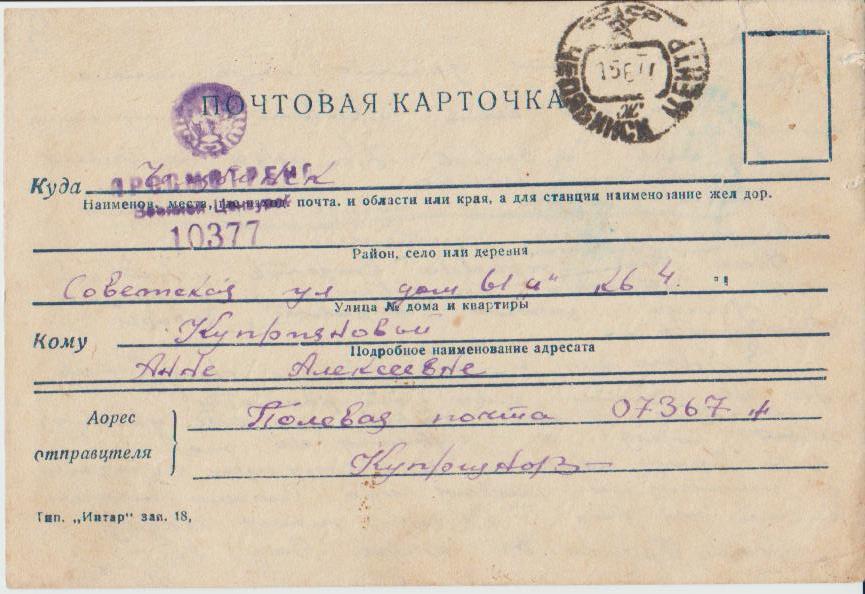 СССР
ЧЕЛЯБИНСК ЦЕНТР
ПОЧТОВАЯ КАРТОЧКА
Куда
ПРОСМОТРЕНО
Военной Цензурой
10377
Наименов. места, где наход. почта. и области или края, а для станции наименование жел дор.
Район, село или деревня
Советская ул дом 61 "и" кв 4
Улица № дома и квартиры
Кому Куприяновой
Подробное наименование адресата
Анне Алексеевне
Адрес отправителя
Полевая почта 07367
Куприянов
Тип. „Интар" зап. 18,